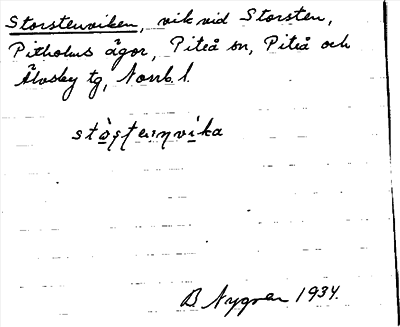 Storstenviken, vik vid Storsten,
Pitholms ägor, Piteå sn, Piteå och
Älvsby tg, Norrb. l.
B. Nygren 1934.